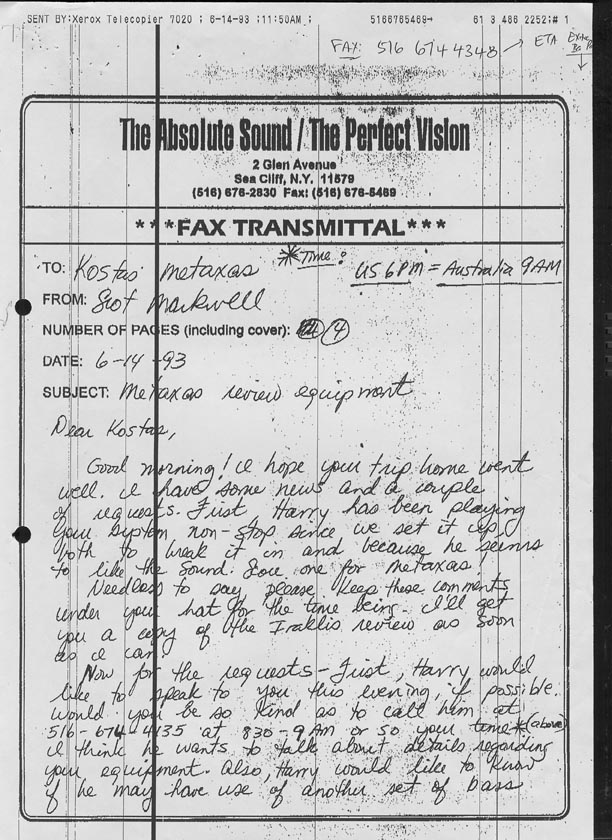 SENT BY:Xerox Telecopier 7020 ; 6-14-93 ;11:50AM ; 5166765469→ 61 3 486 2252;# 1
FAX: 516 674 4348 → ETA
The Absolute Sound / The Perfect Vision
2 Glen Avenue
Sea Cliff, N.Y. 11579
(516) 676-2830 Fax: (516) 676-5469
***FAX TRANSMITTAL***
TO: Kostas Metaxas *Time: US 6PM = Australia 9AM
FROM: Scot Markwell
NUMBER OF PAGES (including cover): 4
DATE: 6-14-93
SUBJECT: Metaxas review equipment
Dear Kostas,
Good morning! I hope your trip home went
well. I have some news and a couple
of requests. First, Harry has been playing
your system non-stop since we set it up,
both to break it in and because he seems
to like the sound. Score one for Metaxas!
Needless to say, please keep these comments
under your hat for the time being. I'll get
you a copy of the Iraklis review as soon
as I can.
Now for the requests - First, Harry would
like to speak to you this evening, if possible.
Would you be so kind as to call him at
516-674-4135 at 830-9AM or so your time*(above)
I think he wants to talk about details regarding
your equipment. Also, Harry would like to know
if he may have use of another set of bass